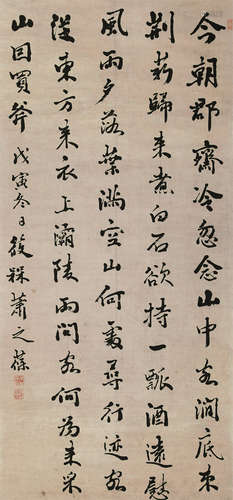 今朝郡齋冷忽念山中客澗底束
荆薪歸來煮白石欲持一瓢酒遠慰
風雨夕落葉滿空山何處尋行迹客
從東方來衣上灞陵雨問客何為來采
山因買斧戊寅冬日筱槑蕭之葆